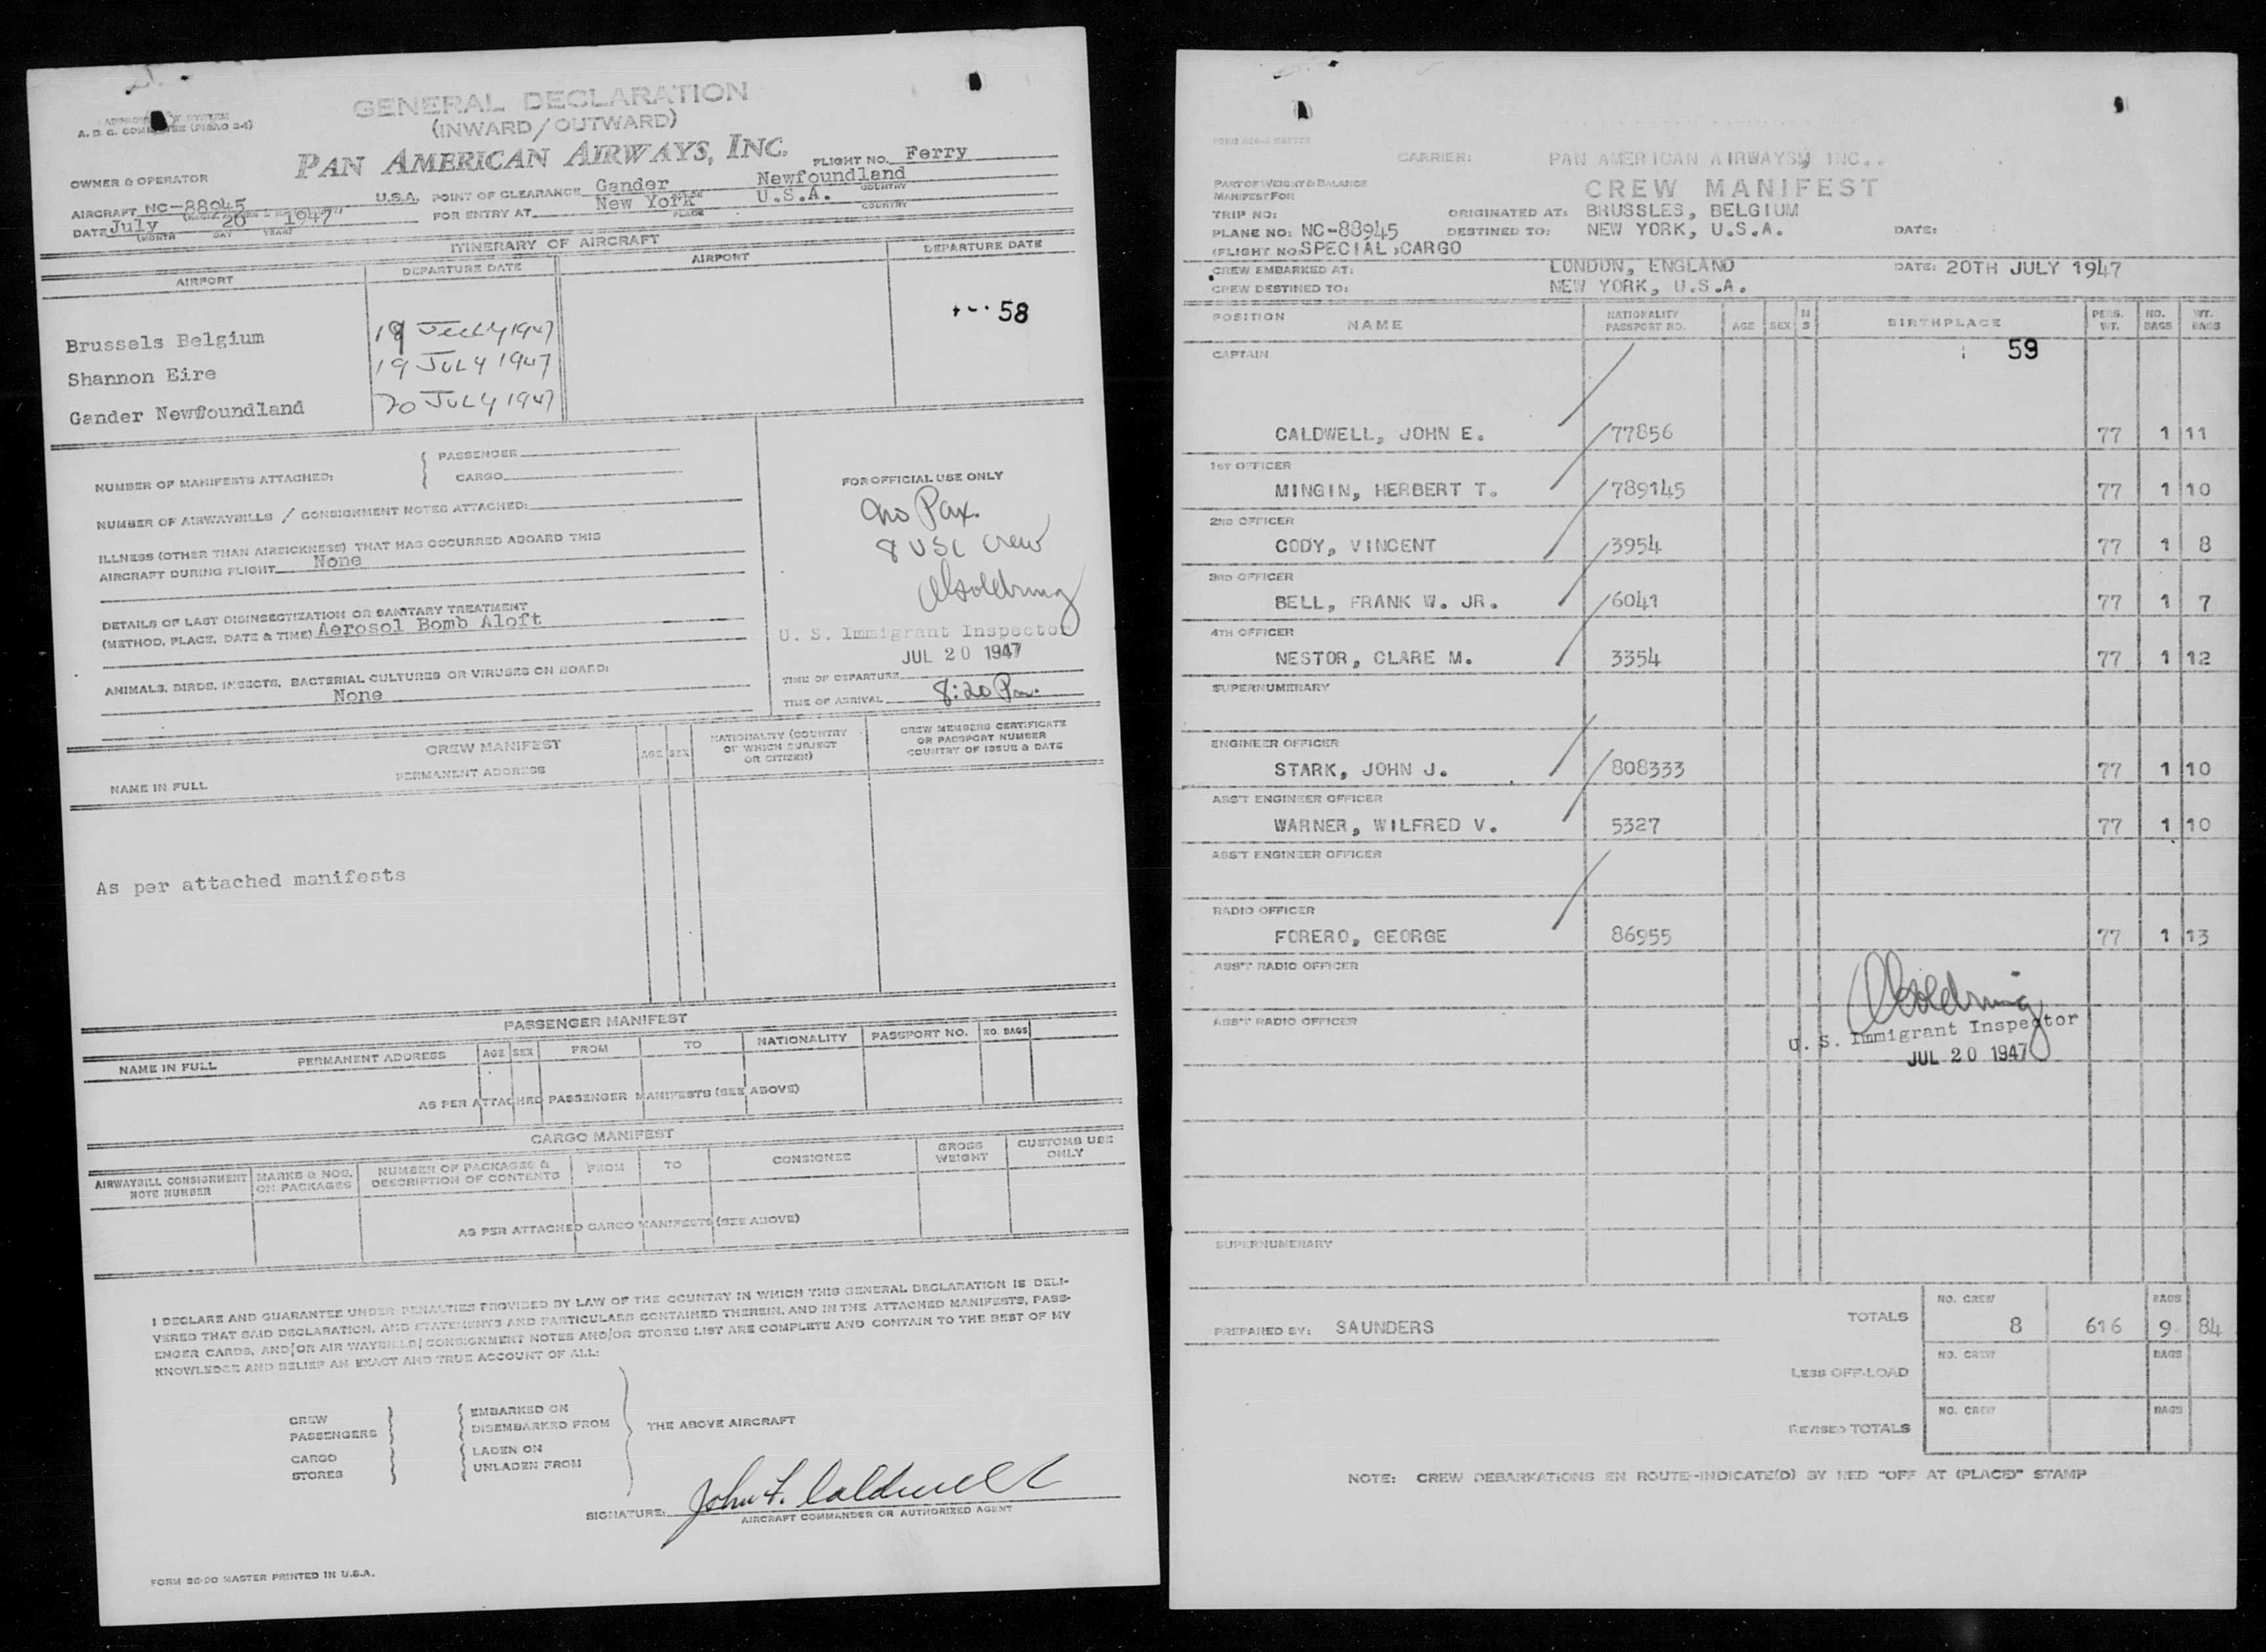 GENERAL DECLARATION
(INWARD/OUTWARD)
A. D. C. COMMITTEE (PICAO 2-4)
PAN AMERICAN AIRWAYS, INC.
FLIGHT NO. Ferry
OWNER & OPERATOR
AIRCRAFT NC-88945
U.S.A. POINT OF CLEARANCE Gander Newfoundland
PLACE COUNTRY
DATE July 20 1947
(MONTH DAY YEAR)
FOR ENTRY AT New York U.S.A.
PLACE COUNTRY
ITINERARY OF AIRCRAFT
AIRPORT DEPARTURE DATE AIRPORT DEPARTURE DATE
58
Brussels Belgium 18 JULY 1947
Shannon Eire 19 JULY 1947
Gander Newfoundland 20 JULY 1947
NUMBER OF MANIFESTS ATTACHED: { PASSENGER
CARGO
NUMBER OF AIRWAYBILLS / CONSIGNMENT NOTES ATTACHED:
ILLNESS (OTHER THAN AIRSICKNESS) THAT HAS OCCURRED ABOARD THIS
AIRCRAFT DURING FLIGHT None
DETAILS OF LAST DISINSECTIZATION OR SANITARY TREATMENT
(METHOD, PLACE, DATE & TIME) Aerosol Bomb Aloft
ANIMALS, BIRDS, INSECTS, BACTERIAL CULTURES OR VIRUSES ON BOARD:
None
FOR OFFICIAL USE ONLY
No Pax.
8 USC Crew
Goldring
U. S. Immigrant Inspector
JUL 20 1947
TIME OF DEPARTURE
TIME OF ARRIVAL 8:20 Pm.
CREW MANIFEST
NAME IN FULL PERMANENT ADDRESS AGE SEX NATIONALITY (COUNTRY OF WHICH SUBJECT OR CITIZEN) CREW MEMBERS CERTIFICATE OR PASSPORT NUMBER COUNTRY OF ISSUE & DATE
As per attached manifests
PASSENGER MANIFEST
NAME IN FULL PERMANENT ADDRESS AGE SEX FROM TO NATIONALITY PASSPORT NO. NO. BAGS
AS PER ATTACHED PASSENGER MANIFESTS (SEE ABOVE)
CARGO MANIFEST
AIRWAYBILL CONSIGNMENT NOTE NUMBER MARKS & NOS. ON PACKAGES NUMBER OF PACKAGES & DESCRIPTION OF CONTENTS FROM TO CONSIGNEE GROSS WEIGHT CUSTOMS USE ONLY
AS PER ATTACHED CARGO MANIFESTS (SEE ABOVE)
I DECLARE AND GUARANTEE UNDER PENALTIES PROVIDED BY LAW OF THE COUNTRY IN WHICH THIS GENERAL DECLARATION IS DELI-
VERED THAT SAID DECLARATION, AND STATEMENTS AND PARTICULARS CONTAINED THEREIN, AND IN THE ATTACHED MANIFESTS, PASS-
ENGER CARDS, AND/OR AIR WAYBILLS/CONSIGNMENT NOTES AND/OR STORES LIST ARE COMPLETE AND CONTAIN TO THE BEST OF MY
KNOWLEDGE AND BELIEF AN EXACT AND TRUE ACCOUNT OF ALL:
CREW
PASSENGERS
CARGO
STORES
EMBARKED ON
DISEMBARKED FROM
LADEN ON
UNLADEN FROM
THE ABOVE AIRCRAFT
SIGNATURE: John F. Caldwell
AIRCRAFT COMMANDER OR AUTHORIZED AGENT
FORM 26-90 MASTER PRINTED IN U.S.A.
CARRIER: PAN AMERICAN AIRWAYSM INC..
PART OF WEIGHT & BALANCE
MANIFEST FOR
CREW MANIFEST
TRIP NO: ORIGINATED AT: BRUSSLES, BELGIUM
PLANE NO: NC-88945 DESTINED TO: NEW YORK, U.S.A. DATE:
(FLIGHT NO: SPECIAL ,CARGO
CREW EMBARKED AT: LONDON, ENGLAND DATE: 20TH JULY 1947
CREW DESTINED TO: NEW YORK, U.S.A.
POSITION NAME NATIONALITY PASSPORT NO. AGE SEX M S BIRTHPLACE PERS. WT. NO. BAGS WT. BAGS
CAPTAIN 59
CALDWELL, JOHN E. 77856 77 1 11
1ST OFFICER
MINGIN, HERBERT T. 789145 77 1 10
2ND OFFICER
CODY, VINCENT 3954 77 1 8
3RD OFFICER
BELL, FRANK W. JR. 6041 77 1 7
4TH OFFICER
NESTOR, CLARE M. 3354 77 1 12
SUPERNUMERARY
ENGINEER OFFICER
STARK, JOHN J. 808333 77 1 10
ASS'T ENGINEER OFFICER
WARNER, WILFRED V. 5327 77 1 10
ASS'T ENGINEER OFFICER
RADIO OFFICER
FORERO, GEORGE 86955 77 1 13
ASS'T RADIO OFFICER
Goldring
ASS'T RADIO OFFICER
U. S. Immigrant Inspector
JUL 20 1947
SUPERNUMERARY
PREPARED BY: SAUNDERS
TOTALS NO. CREW 8 616 BAGS 9 84
LESS OFF-LOAD NO. CREW BAGS
REVISED TOTALS NO. CREW BAGS
NOTE: CREW DEBARKATIONS EN ROUTE-INDICATE(D) BY RED "OFF AT (PLACE)" STAMP